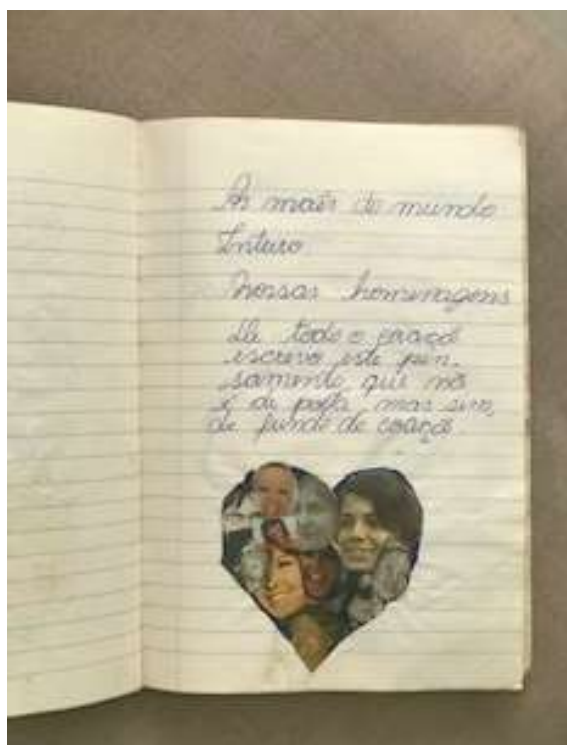 As mães do mundo
Inteiro
nossas homenagens
De todo o coraçõ
escrevo este pen-
samento que nõ
é de poeta mas sim
de fundo de coraçõ